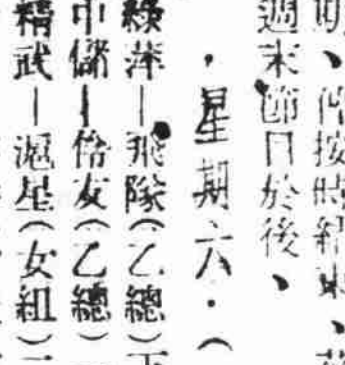 明、仍按時結束、
週末節目於後、
・星期六・（
綠萍—飛隊（乙總）下
中儲—恊友（乙總）
精武—滬星（女組）